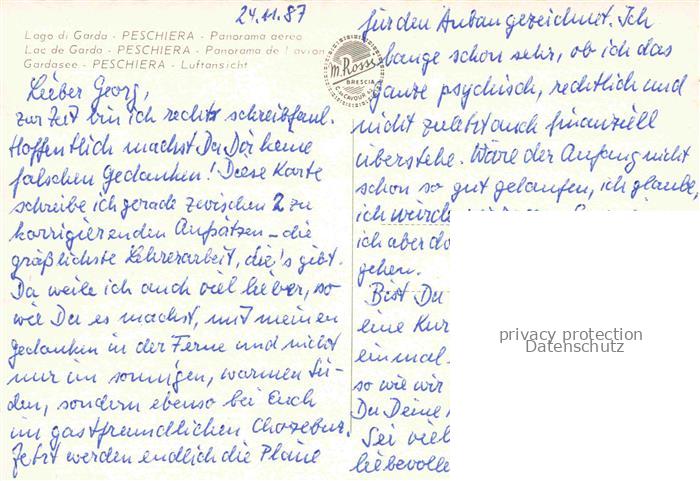 24.11.87
Lago di Garda - PESCHIERA - Panorama aereo
Lac de Garda - PESCHIERA - Panorama de l'avion
Gardasee - PESCHIERA - Luftansicht
M. Rossi
BRESCIA
Lieber Georg,
zur Zeit bin ich recht schreibfaul.
Hoffentlich machst Du Dir keine
falschen Gedanken! Diese Karte
schreibe ich gerade zwischen 2 zu
korrigierenden Aufsätzen - die
gräßlichste Lehrerarbeit, die's gibt.
Da weile ich auch viel lieber, so
wie Du es machst, mit meinen
Gedanken in der Ferne und nicht
nur im sonnigen, warmen Sü-
den, sondern ebenso bei Euch
im gastfreundlichen
Jetzt werden endlich die Pläne
für den Anbau gezeichnet. Ich
bange schon sehr, ob ich das
ganze psychisch, rechtlich und
nicht zuletzt auch finanziell
überstehe. Wäre der Anfang nicht
schon so gut gelaufen, ich glaube,
ich würde
ich aber do
gehen.
Bist Du
eine Kur
einmal.
so wie wir
Du Deine
Sei viel
liebevolle
privacy protection
Datenschutz